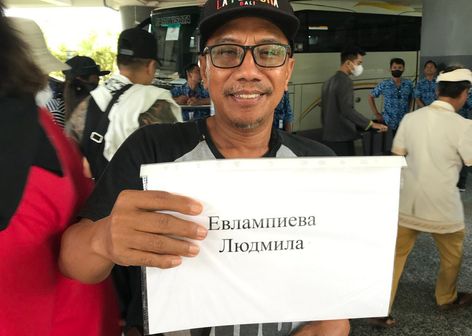 BALI
Евлампиева
Людмила